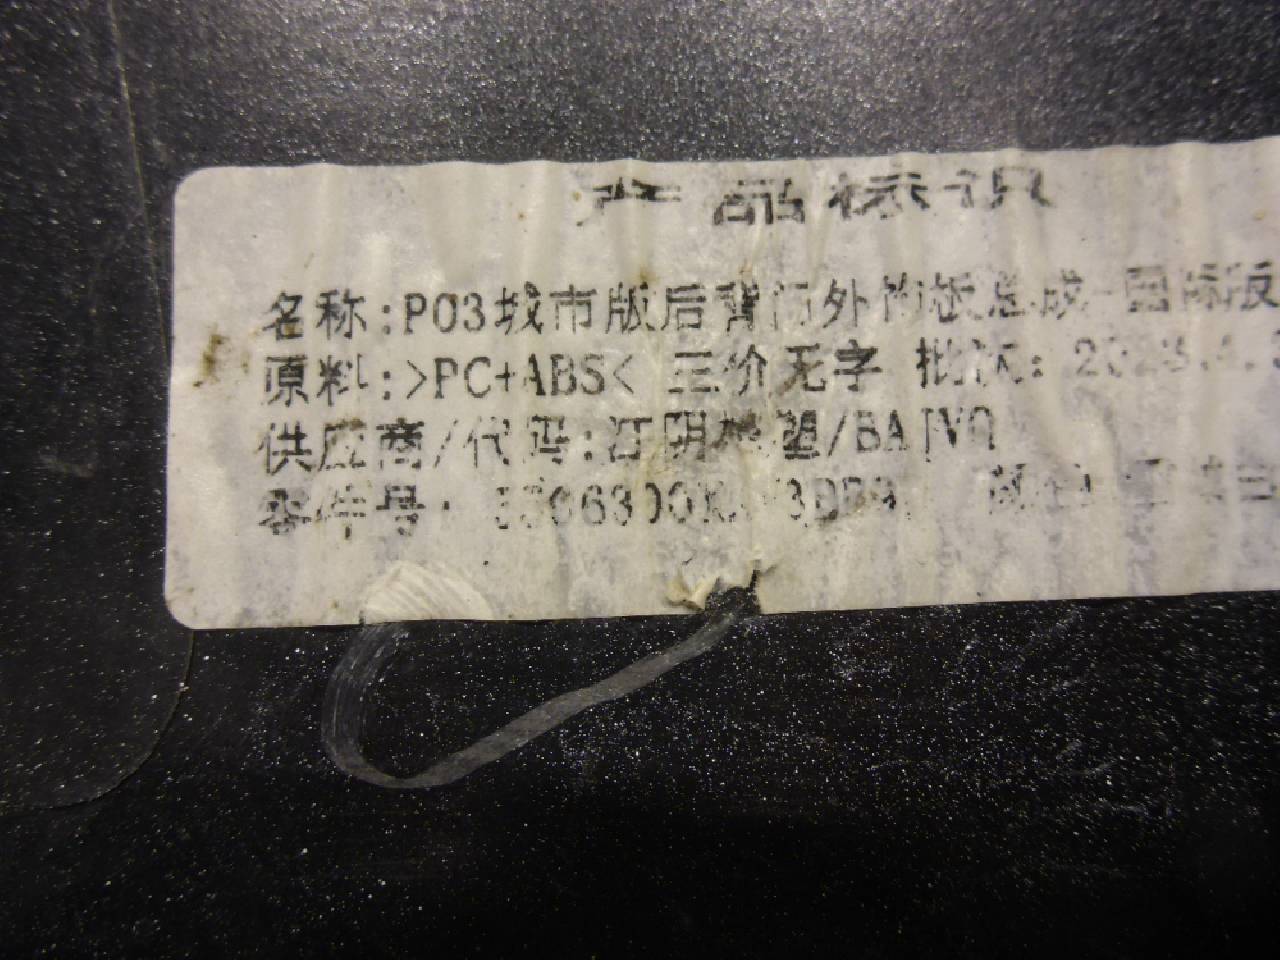 产品标识
名称:P03城市版后背门外饰板总成-国际版
原料:>PC+ABS< 三价无字 批次:
供应商/代码:江阴 塑/BAJVQ
零件号: